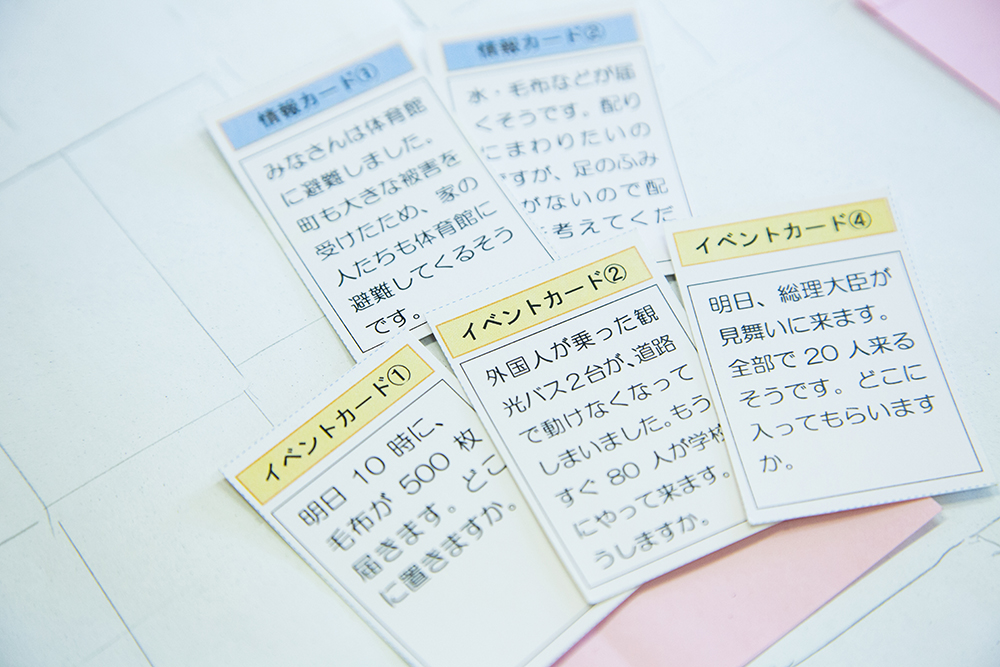 情報カード①
みなさんは体育館
に避難しました。
町も大きな被害を
受けたため、家の
人たちも体育館に
避難してくるそう
です。
情報カード②
水・毛布などが届
くそうです。配り
にまわりたいの
ですが、足のふみ
がないので配
考えてくだ
イベントカード①
明日 10 時に、
毛布が 500 枚
届きます。どこ
に置きますか。
イベントカード②
外国人が乗った観
光バス2台が、道路
で動けなくなって
しまいました。もう
すぐ 80 人が学校
にやって来ます。
うしますか。
イベントカード④
明日、総理大臣が
見舞いに来ます。
全部で 20 人来る
そうです。どこに
入ってもらいます
か。